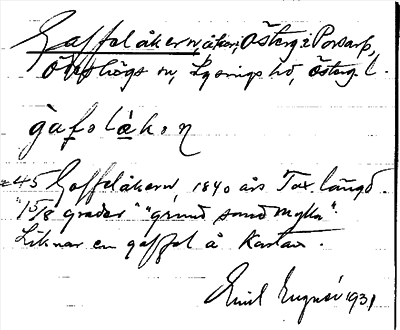 Gaffelåkern, åker, Österg. i Porsarp,
Ö. sn, Lysings hd, Österg. l.
gafolåkɘn
=45 Gaffelåkern 1840 års Tax. längd.
"15/8 grader" "grund sand mylla".
Liknar en gaffel å Kartan.
Emil 1931